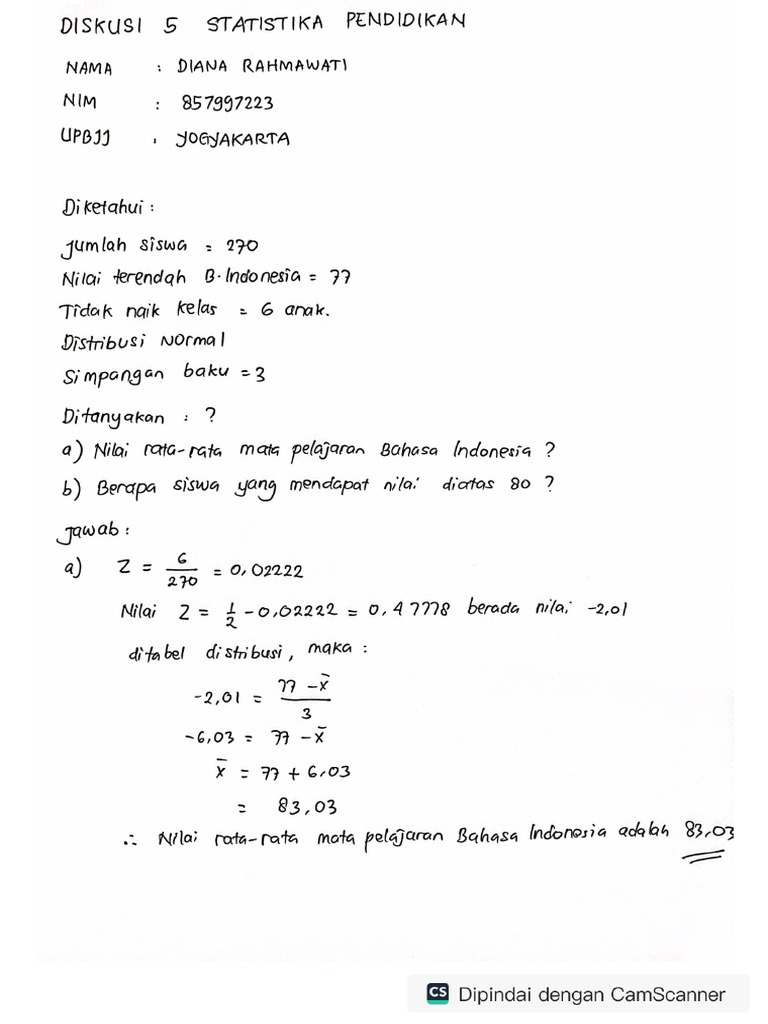 DISKUSI 5 STATISTIKA PENDIDIKAN
NAMA : DIANA RAHMAWATI
NIM : 857997223
UPBJJ : YOGYAKARTA
Diketahui :
Jumlah siswa = 270
Nilai terendah B. Indonesia = 77
Tidak naik kelas = 6 anak.
Distribusi Normal
Simpangan baku = 3
Ditanyakan : ?
a) Nilai rata-rata mata pelajaran Bahasa Indonesia ?
b) Berapa siswa yang mendapat nilai diatas 80 ?
Jawab :
a) Z = 6/270 = 0,02222
Nilai Z = 1/2 - 0,02222 = 0,47778 berada nilai -2,01
ditabel distribusi, maka :
-2,01 = (77 - x̄)/3
-6,03 = 77 - x̄
x̄ = 77 + 6,03
= 83,03
∴ Nilai rata-rata mata pelajaran Bahasa Indonesia adalah 83,03
CS Dipindai dengan CamScanner